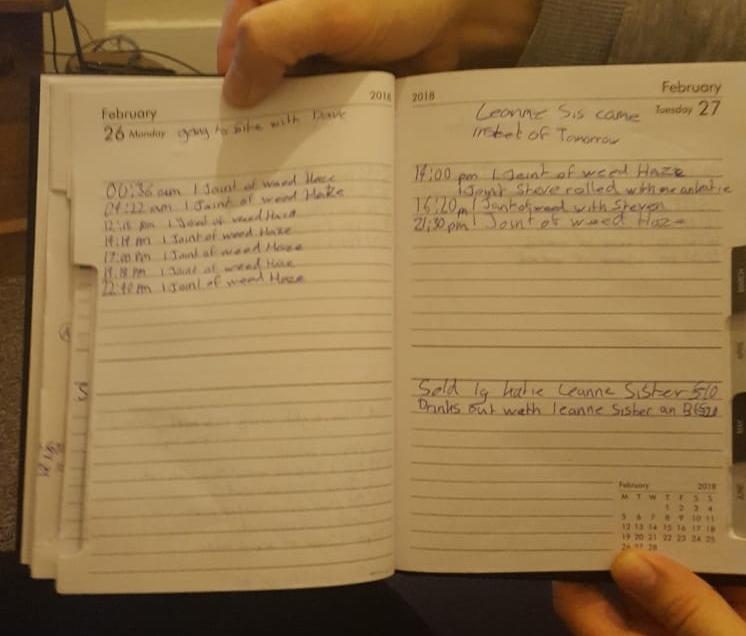 2018
February
26 Monday going to bike with Dave
00:36 am 1 Joint of weed Haze
04:22 am 1 Joint of weed Haze
pm 1 Joint of weed Haze
14:19 pm 1 Joint of weed Haze
17:00 pm 1 Joint of weed Haze
pm 1 Joint of weed Haze
22:40 pm 1 Joint of weed Haze
2018
February
Tuesday 27
Leanne Sis came
of Tomorrow
14:00 pm 1 Joint of weed Haze
1 Joint Steve rolled with me an katie
16:20 pm 1 Joint of weed with Steven
21:30 pm 1 Joint of weed Haze
Sold 1g katie Leanne Sister £10
Drinks out with leanne Sister an
February 2018
M T W T F S S
1 2 3 4
5 6 7 8 9 10 11
12 13 14 15 16 17 18
19 20 21 22 23 24 25
26 27 28